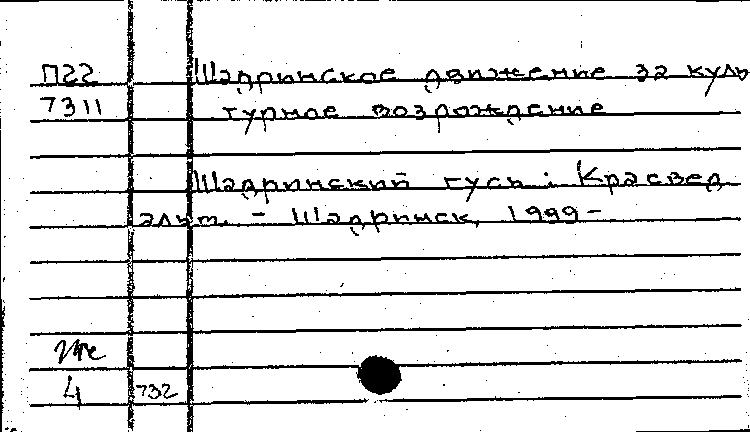 П22 Шадринское движение за куль
7311 турное возрождение
Шадринский гусь : Краевед
альм. - Шадринск, 1999-
4 732